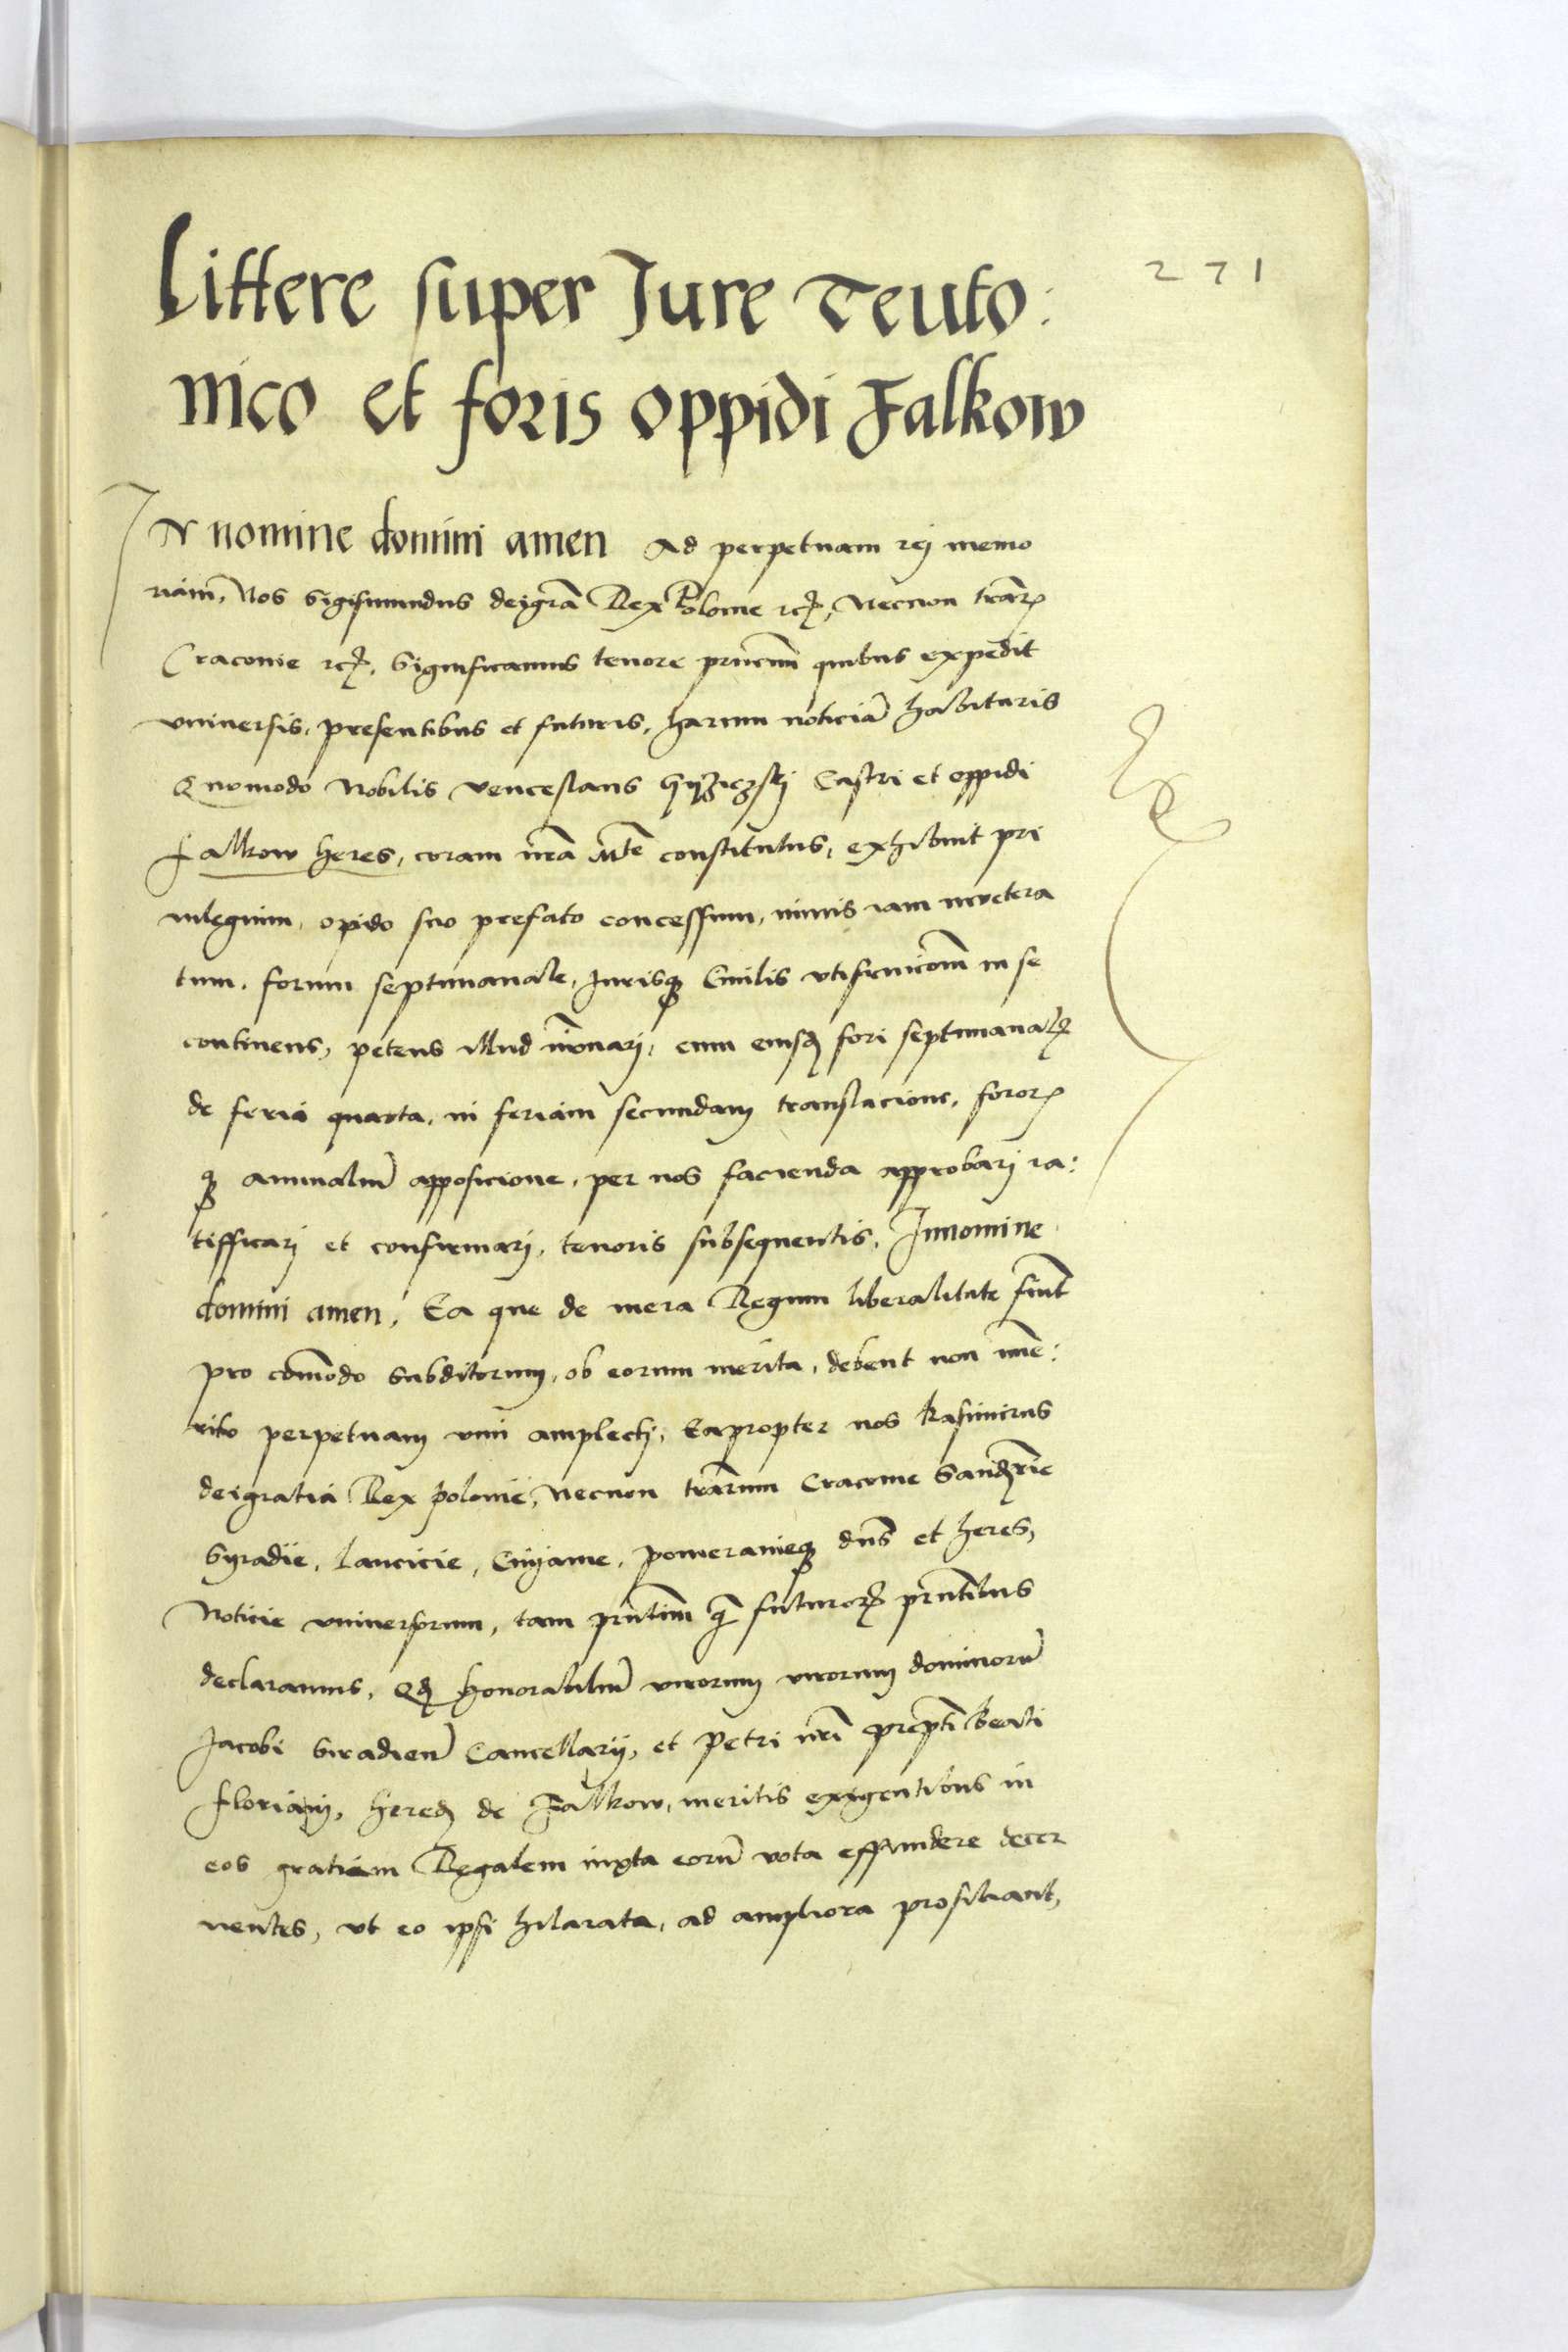 271
Littere super Jure Teuto:
nico et foris oppidi Falkow
IN nomine domini amen Ad perpetuam rej memo
riam, Nos Sigismundus deigrã Rex Polonie rc̃, Necnon trãrꝝ
Cracouie rc̃. Significamus tenore prñcium quibus expedit
vniuersis, presentibus et futuris, harum noticiã habituris
Quomodo Nobilis Venceslaus Castri et oppidi
Falkow heres, coram nrã Mte constitutus, exhibuit pri
uilegium, opido suo prefato concessum, nimis iam inuetera
tum, forum septimanale, Jurisqꝫ Ciuilis vtifruicõm in se
continens, petens illud jñouarj, cum eiusdẽ fori septimanalꝭ
de feria quarta, in feriam secundam translacione, fororꝝ
qꝫ annualiũ apposicione, per nos facienda approbarj ra:
tifficarj et confirmarj, tenoris subsequentis, Innomine
domini amen, Ea que de mera Regum liberalitate fiunt
pro cõmodo Subditorum, ob eorum merita, debent non ĩme:
rito perpetuam vim amplectj, Eapropter nos kasimirus
deigratia Rex polonie, Necnon trãrum Cracouie Sandm̃rie
Syradie, Lancicie, Cuyauie, pomeranieqꝫ dñs et heres,
Noticie vniuersorum, tam prñtium qꝫ̃ futurorꝝ prñtibus
declaramus, Qdꝫ honorabiliũ virorum virorum dominorũ
Jacobi Siradieñ Cancellarij, et Petri nrĩ preptĩ Beati
Florianj, heredꝫ de Falkow, meritis exigentibus in
eos gratiam Regalem iuxta eorũ vota effundere decer
nentes, vt eo ipsi hilarata, ad ampliora prosiliant,